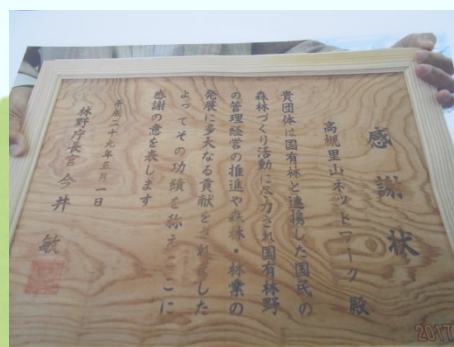 感謝状
高槻里山ネットワーク殿
貴団体は国有林と連携した国民の
森林づくり活動に尽力され国有林野
の管理経営の推進や森林・林業の
発展に多大なる貢献をされました
よってその功績を称えここに
感謝の意を表します
平成二十九年三月一日
林野庁長官 今井 敏
2017